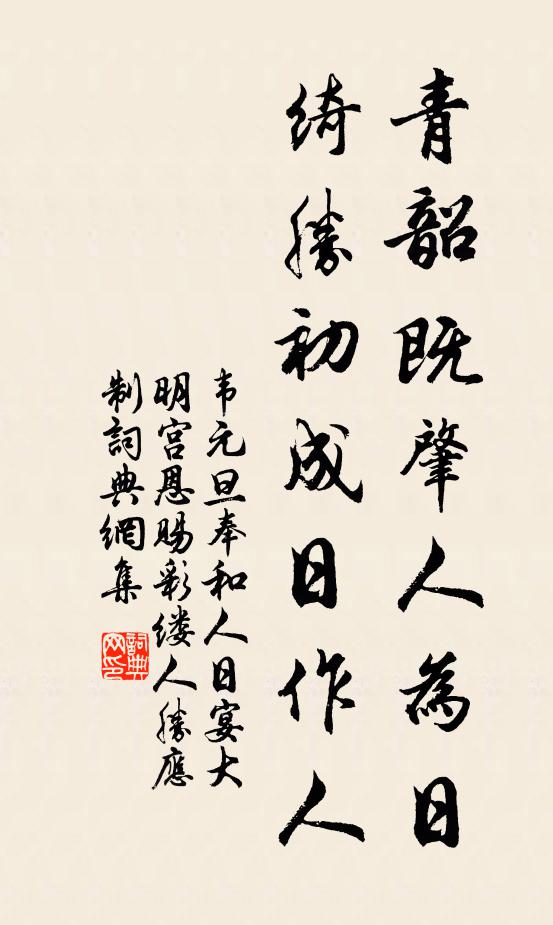 青韶既肇人為日
綺勝初成日作人
韦元旦奉和人日宴大
明宫恩賜彩缕人勝應
制詞典網集
詞典
网印